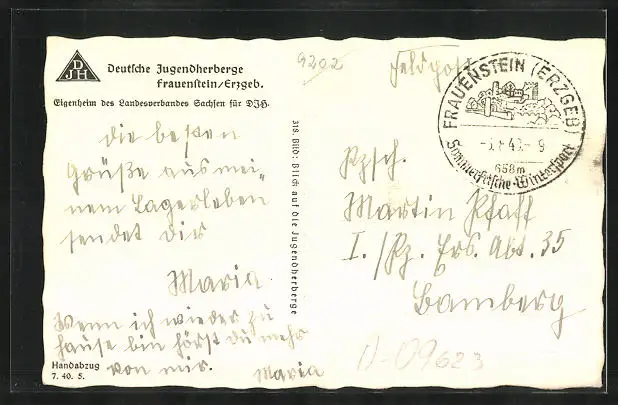 DJH
Deutsche Jugendherberge
Frauenstein/Erzgeb.
Eigenheim des Landesverbandes Sachsen für DJH.
die besten
Grüße aus mei-
nem Lagerleben
sendet Dir
Maria
Wenn ich wieder zu
hause bin hörst du mehr
von mir.
Maria
Handabzug
7. 40. 5.
318. Bild: Blick auf die Jugendherberge
9202
Feldpost
FRAUENSTEIN (ERZGEB)
658m
Sommerfrische · Wintersport
Pzsch.
Martin Pfaff
I./Pz. Ers. Abt. 35
Bamberg
D-09623